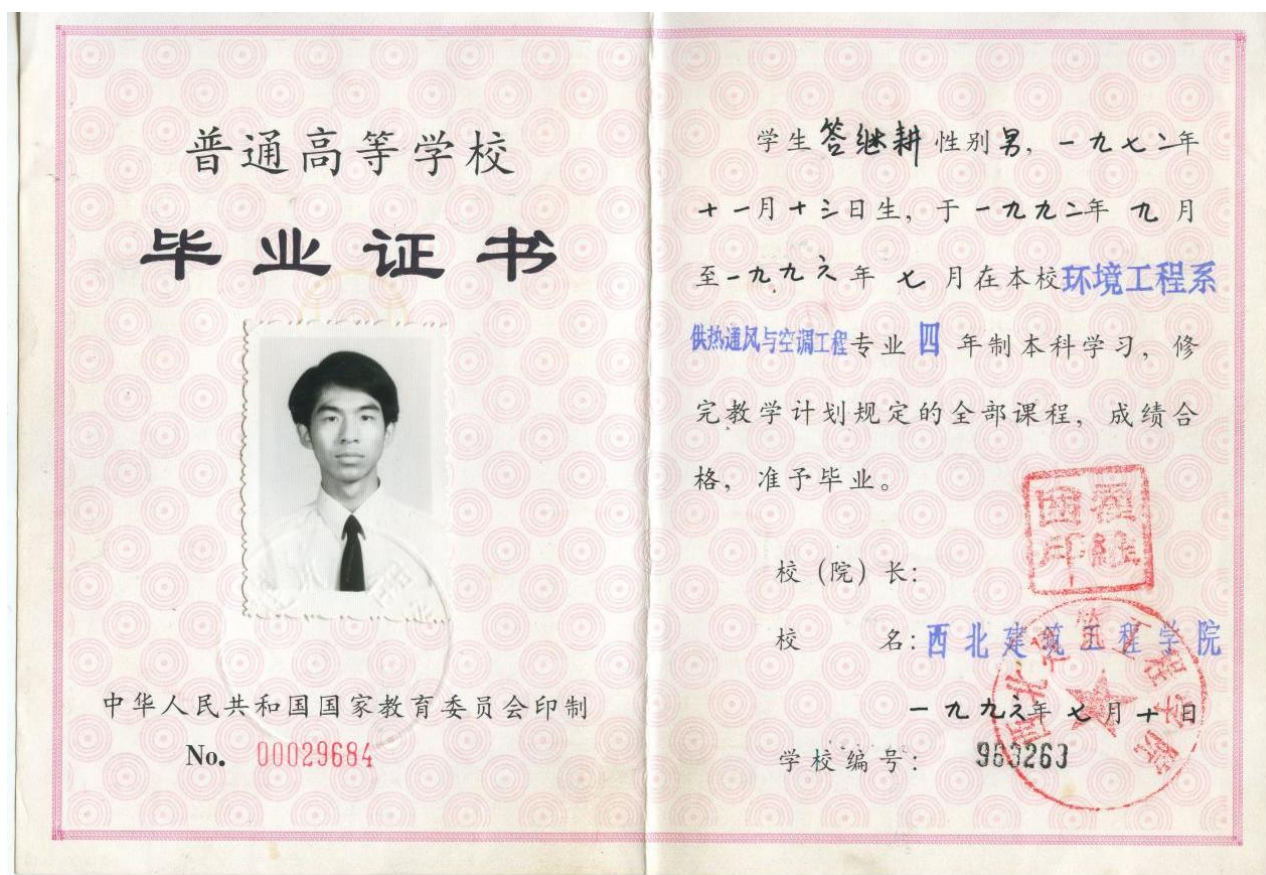 普通高等学校
毕业证书
中华人民共和国国家教育委员会印制
No. 00029684
学生答继耕性别男，一九七二年
十一月十三日生，于一九九二年九月
至一九九六年七月在本校环境工程系
供热通风与空调工程专业四年制本科学习，修
完教学计划规定的全部课程，成绩合
格，准予毕业。
校（院）长：
校名：西北建筑工程学院
一九九六年七月十日
学校编号：963263
西北建筑工程学院